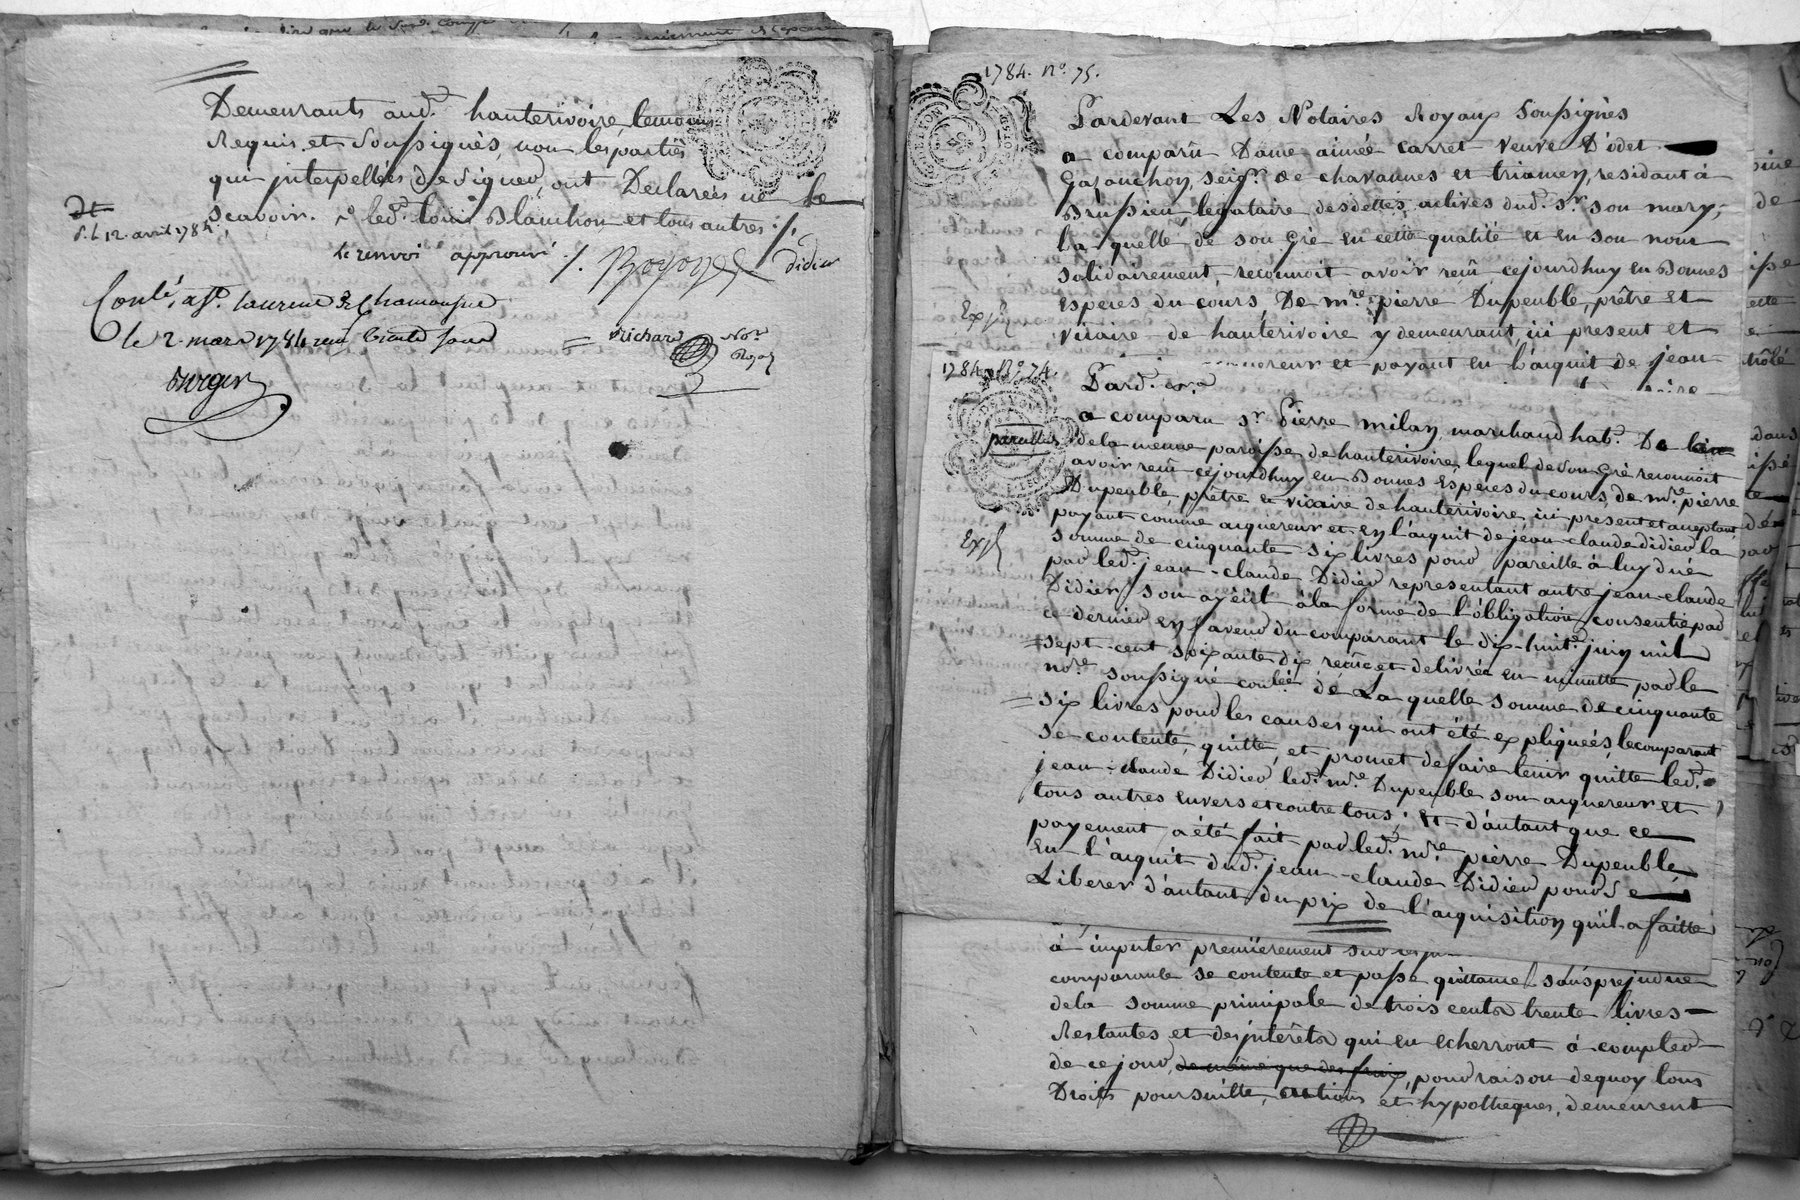 Demeurants aud.t hauterivoire, temoins
Requis et soussignés, non les parties
qui interpellées de signer, ont Declarées ne le
scavoir. led. louis Blanchon et tous autres ./.
12. avril 1784.
le renvoi approuvé ./.
didier
Conlé, à St. laurent de Chamousset
le 2. mars 1784 reçu trente sous
Richard
No.re
Royal
1784. no. 75.
Pardevant Les Notaires Royaux soussignés
a comparû Dame aimée carret veuve D'odet
Gazanchon, seig.r de chavannes et triamen, residant à
Brussieu, legataire des dettes actives dud. s.r son mary,
la quelle de son Gré en cette qualité et en son nom
solidairement, reconnoit avoir reçû cejourdhuy en Bonnes
Especes du cours, De m.re pierre Dupeuble, prêtre et
vicaire de hauterivoire y demeurant, ici present et
et payant en l'acquit de jean
Exp.
1784. No. 74.
Pard. &c.a
pareilles
a comparu s.r Pierre milan, marchand hab.t De la
dela meme paroisse de hauterivoire, lequel de son Gré reconnoit
avoir reçû cejourdhuy en Bonnes Especes du cours, de m.re pierre
Dupeuble, prêtre et vicaire de hauterivoire, ici present et acceptant
payant comme acquereur et en l'acquit de jean-claude didier la
Exp.
somme de cinquante six livres pour pareille à luy dué
par led. jean-claude Didier representant autre jean-claude
Didier, son ayëul à la forme de l'obligation consentie par
ce dernier en faveur du comparant le dix-huit juin mil
sept-cent soixante dix reçûe et delivrée en minutte par le
no.re soussigné conlée dé La quelle somme de cinquante
six livres pour les causes qui ont été expliquées le comparant
se contente, quitte, et promet de faire tenir quitte led.
jean-claude Didier led. m.re Dupeuble son acquereur et
tous autres envers et contre tous; Et d'autant que ce
payement a été fait par led. m.re pierre Dupeuble
en l'acquit dud. jean-claude Didier pour se
Liberer d'autant du prix de l'acquisition qu'il a faitte
à imputer premierement sur
comparante se contente et passe quittance sans prejudice
dela somme principale de trois cents trente livres
Restantes et des intérêts qui en echerront à compter
de ce jour, de même que des frais, pour raison dequoy tous
Droits poursuitte, actions et hypotheques, demeurent